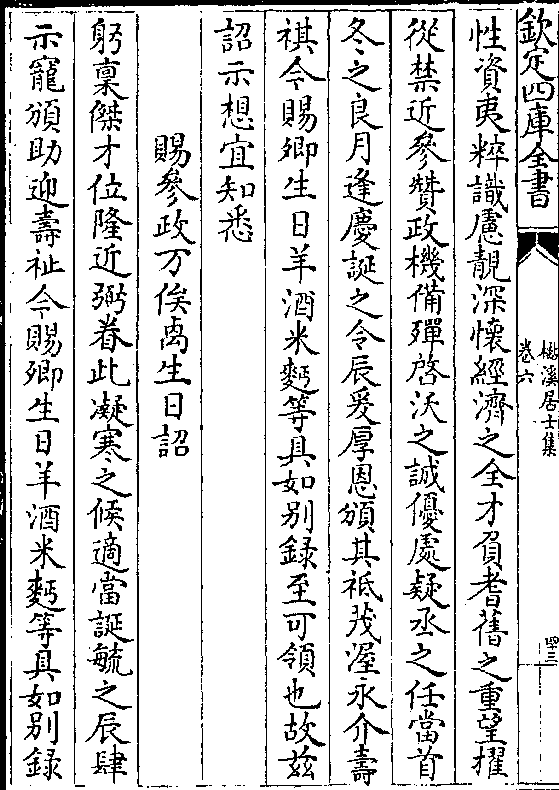 欽定四庫全書
卷六
四十三
性資夷粹識慮靚深懷經濟之全才負耆舊之重望擢
從禁近參贊政機備殫啓沃之誠優處疑丞之任當首
冬之良月逢慶誕之令辰爰厚恩頒其祗茂渥永介壽
祺今賜卿生日羊酒米麪等具如别錄至可領也故兹
詔示想宜知悉
賜參政万俟卨生日詔
躬稟傑才位隆近弼眷此凝寒之候適當誕毓之辰肆
示寵頒助迎壽祉今賜卿生日羊酒米麪等具如别錄